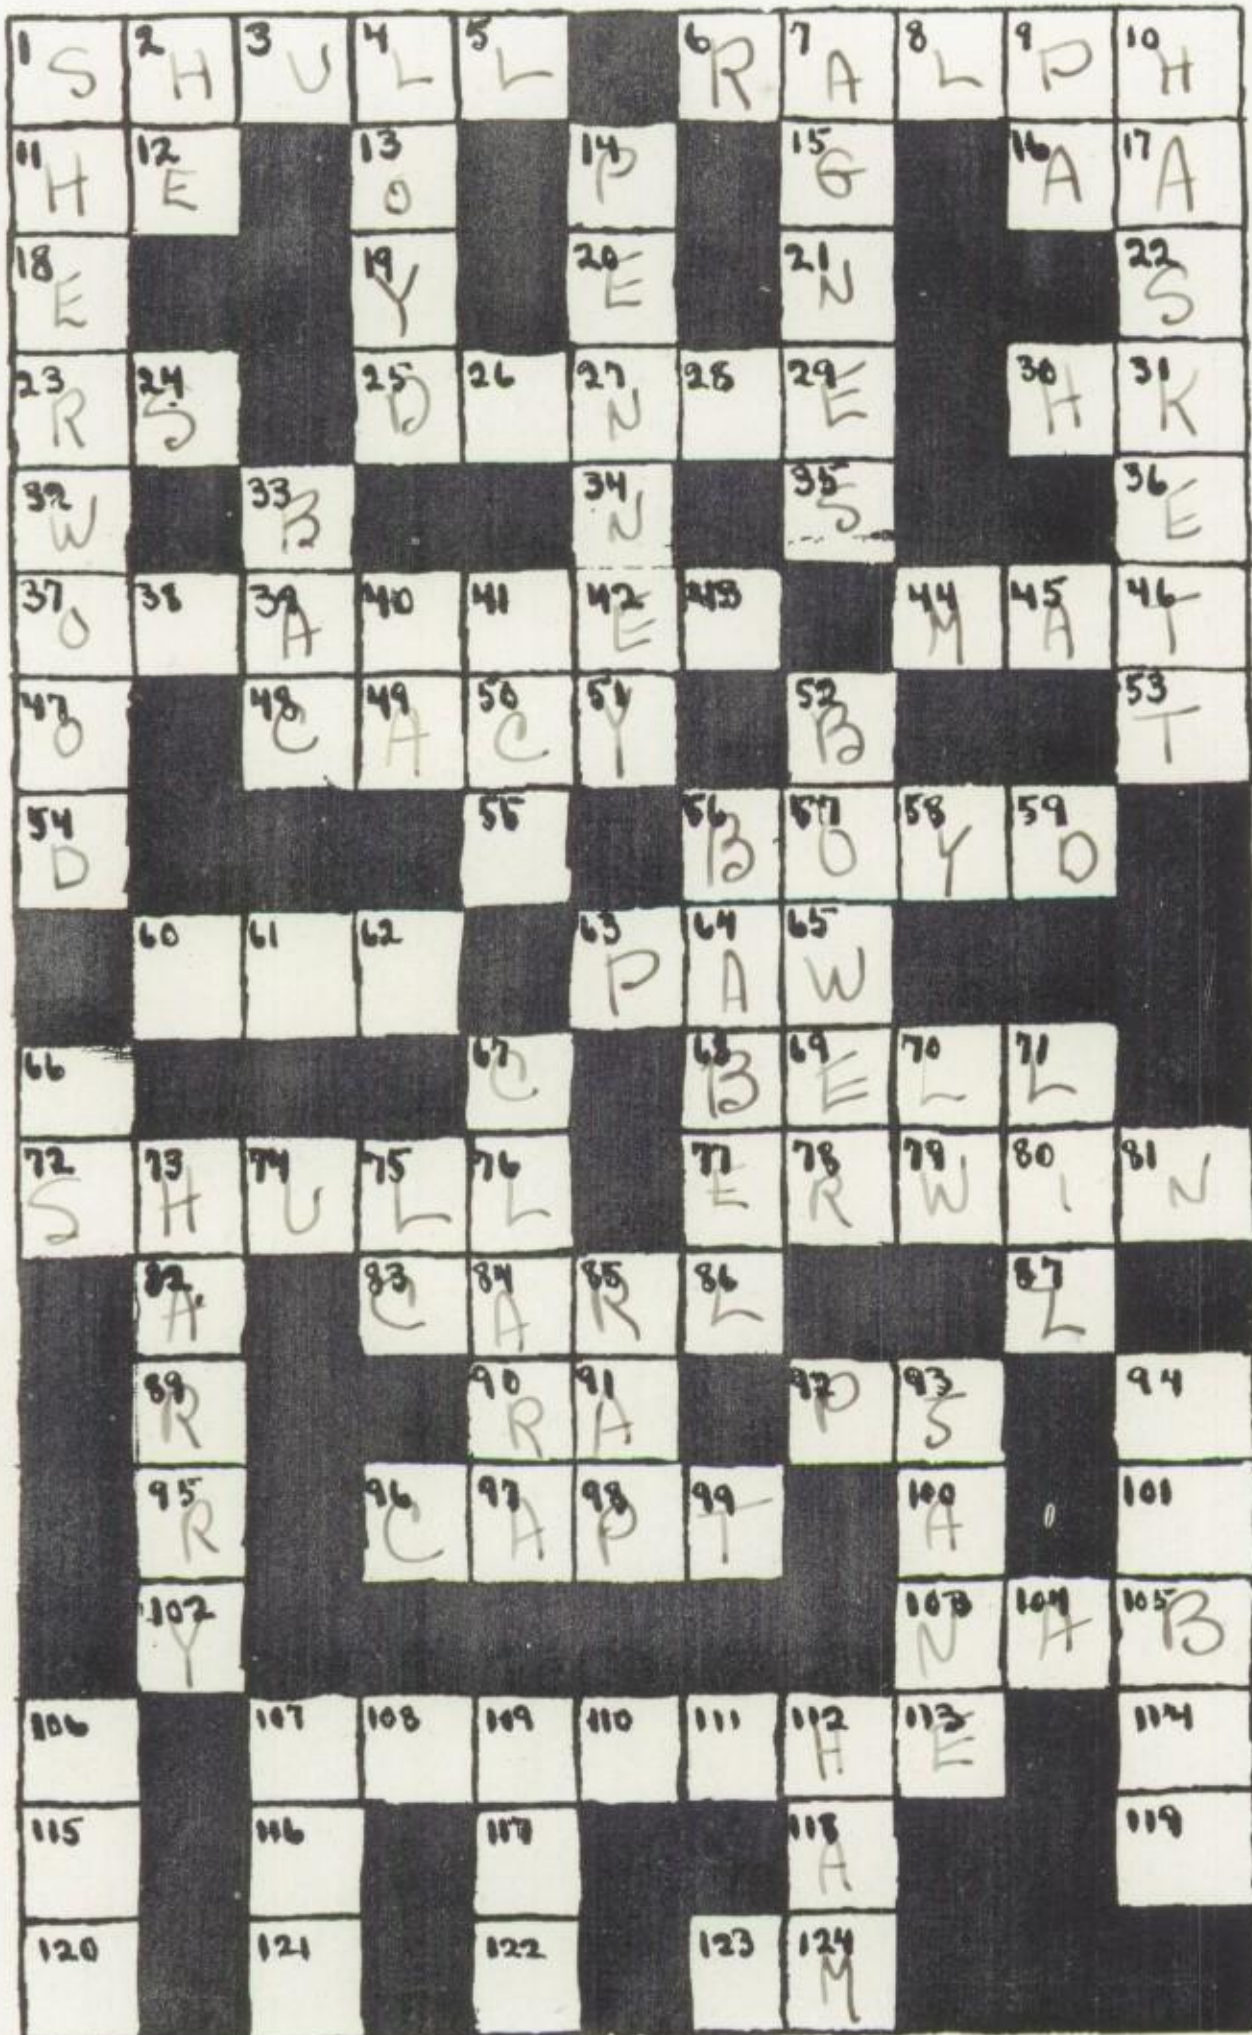 1 S 2 H 3 U 4 L 5 L 6 R 7 A 8 L 9 P 10 H
11 H 12 E 13 O 14 P 15 G 16 A 17 A
18 E 19 Y 20 E 21 N 22 S
23 R 24 S 25 D 26 27 N 28 29 E 30 H 31 K
32 W 33 B 34 N 35 S 36 E
37 O 38 39 A 40 41 42 E 43 44 M 45 A 46 T
47 O 48 C 49 A 50 C 51 Y 52 B 53 T
54 D 55 56 B 57 O 58 Y 59 D
60 61 62 63 P 64 A 65 W
66 67 C 68 B 69 E 70 L 71 L
72 S 73 H 74 U 75 L 76 L 77 E 78 R 79 W 80 I 81 N
82 A 83 C 84 A 85 R 86 L 87 L
89 R 90 R 91 A 92 P 93 S 94
95 R 96 C 97 A 98 P 99 T 100 A 101
102 Y 103 N 104 A 105 B
106 107 108 109 110 111 112 H 113 E 114
115 116 117 118 A 119
120 121 122 123 124 M